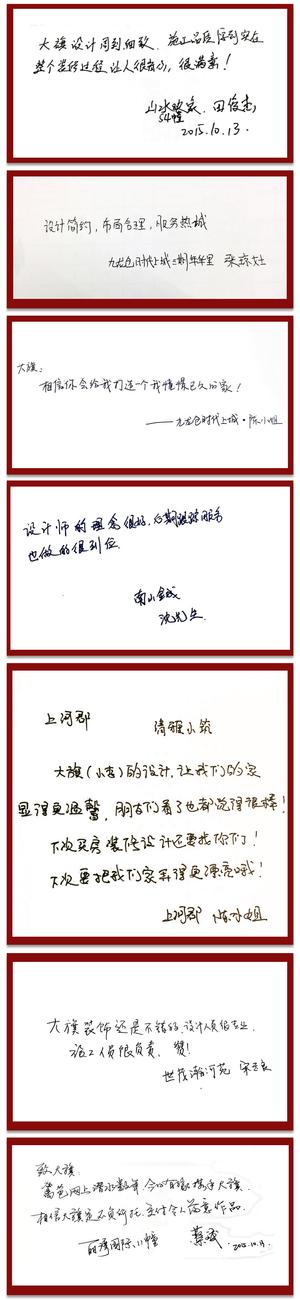 大旗设计周到细致、施工品质得到实在
整个装修过程让人很省心，很满意！
山水
54幢
2015.10.13.
设计简约，布局合理，服务热诚
九龙仓时代上城三期年年里 梁琼灶
大旗：
相信你会给我打造一个我憧憬已久的家！
——九龙仓时代上城·陈小姐
设计师的理念很好，后期跟踪服务
也做的很到位
南山
沈先生
上河郡 清雅小筑
大旗（小杏）的设计，让我们的家
显得更温馨，朋友们看了也都觉得很棒！
下次买房装修设计还要找你们！
下次要把我们家弄得更漂亮哦！
上河郡 陈小姐
大旗装饰还是不错的，设计人员很专业，
施工人员很负责，赞！
世茂 河苑
致大旗：
篱笆网上潜水数年，今日有缘携手大旗，
相信大旗定不负所托，交付令人满意作品。
国际 11幢 2015.10.13.